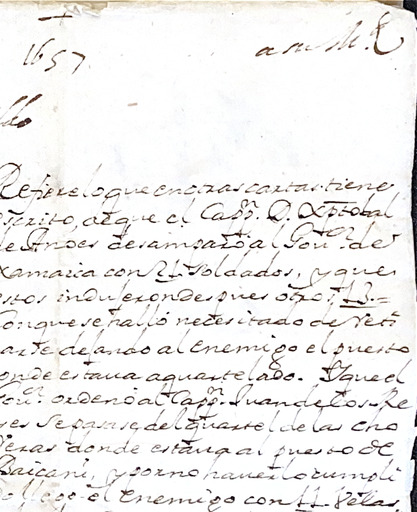 1657 a su M.d
Refiere lo que en otras cartas tiene
scrito, de que el Capp.n D. Xptobal
de desamparo al Gou.or de
xamaica con soldados, y que
stos induxeron despues otros 13=
on que se hallò necesitado de reti
arse dejando al enemigo el puesto
onde estaua aquartelado. Y que el
ou.or ordenó al Capp.n Juan de los Re
es se pasase del quartel de las Cho
eras donde estaua al puesto de
Baicani, y por no hauerlo cumpli
o llegò el Enemigo con 11 Velas.